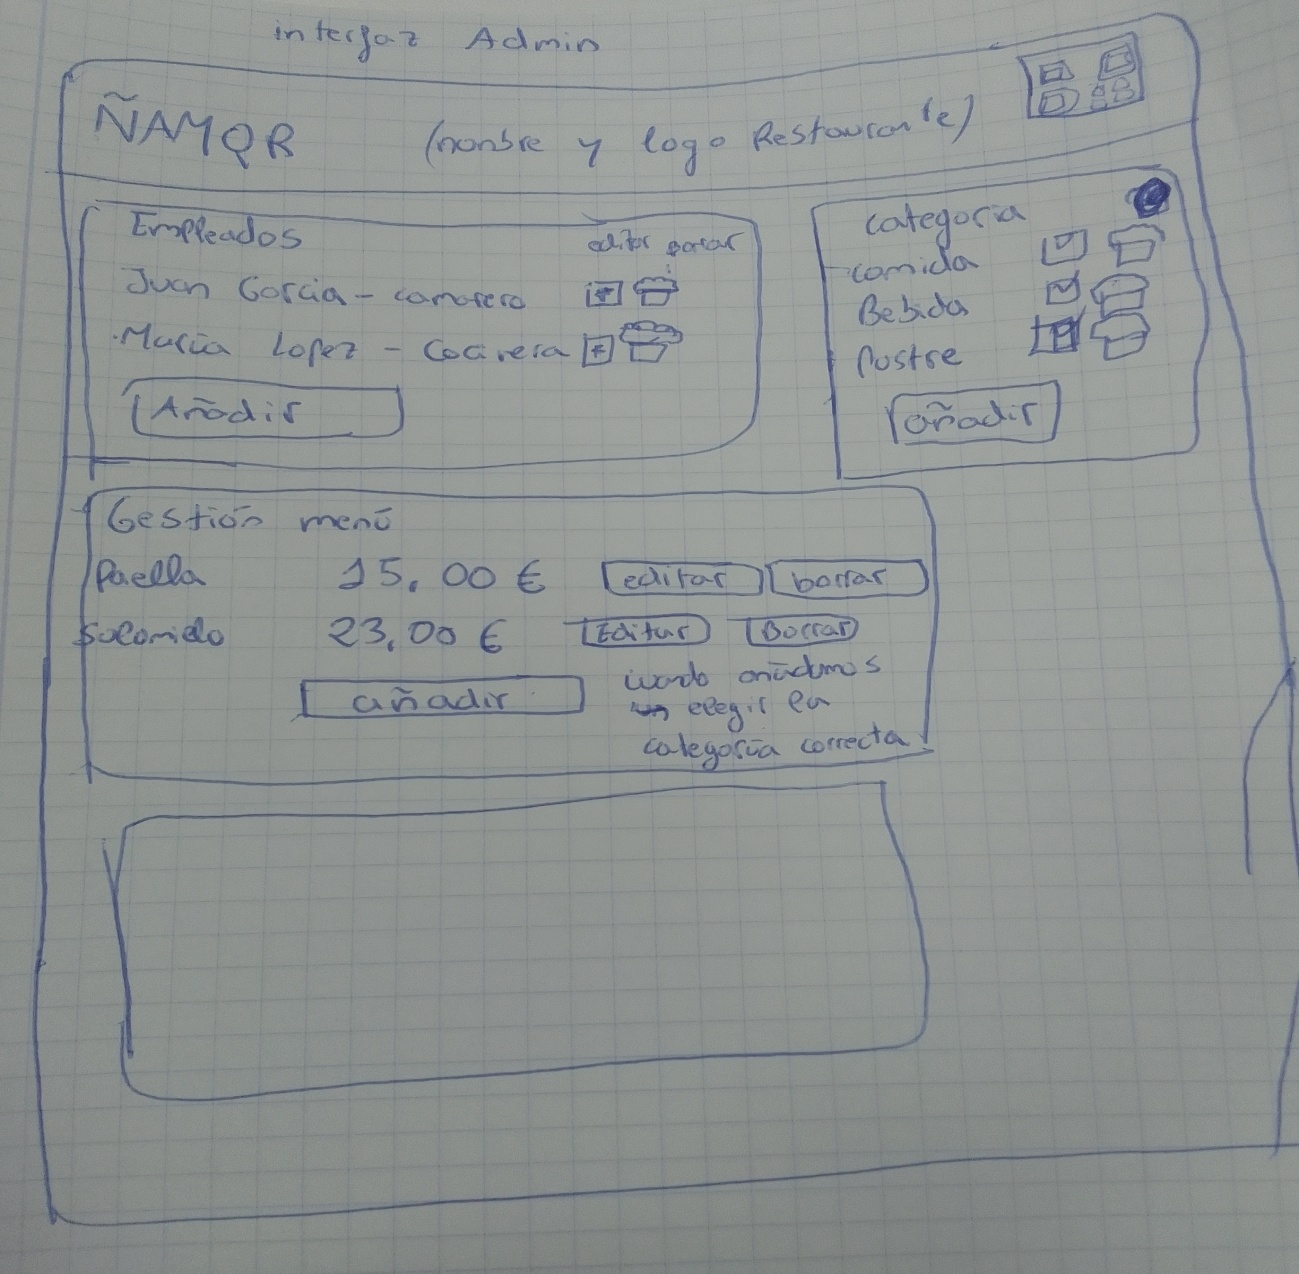 interfaz Admin
ÑAMQR (nombre y logo Restaurante)
Empleados editar borrar
Juan Garcia - camarero
Maria Lopez - Cocinera
Añadir
categoria
comida
Bebida
Postre
añadir
Gestión menú
Paella 15,00 € editar borrar
Solomido 23,00 € Editar Borrar
añadir
cuando añadimos
elegir la
categoria correcta